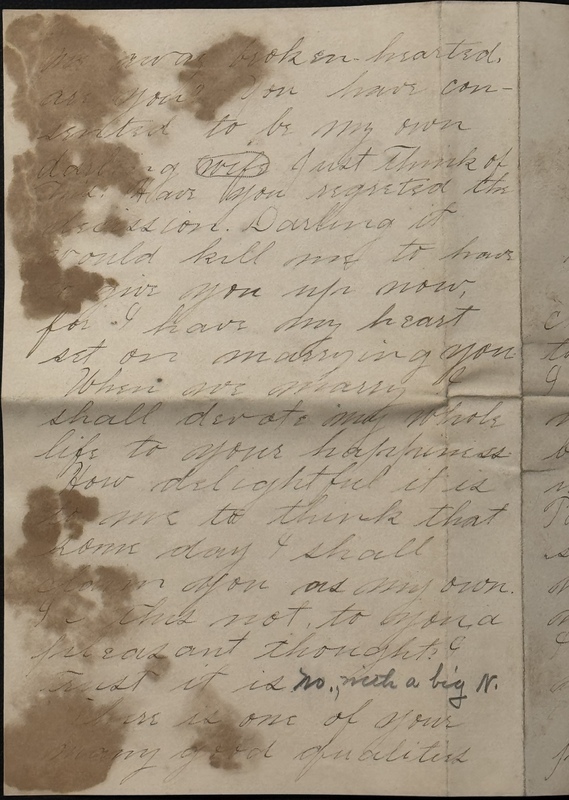 broken-hearted.
are you? You have con-
sented to be my own
darling wife Just think of
it. Have you regreted the
decission. Darling it
would kill me to have
to give you up now,
for I have my heart
set on marrying you
When we marry I
shall devote my whole
life to your happiness
How delightful it is
to me to think that
some day I shall
claim you as my own.
Is this not, to you a
pleasant thought? I
trust it is no., with a big N.
There is one of your
many good qualities